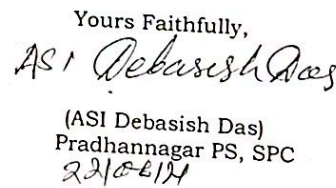 Yours Faithfully,
ASI Debasish Das
(ASI Debasish Das)
Pradhannagar PS, SPC